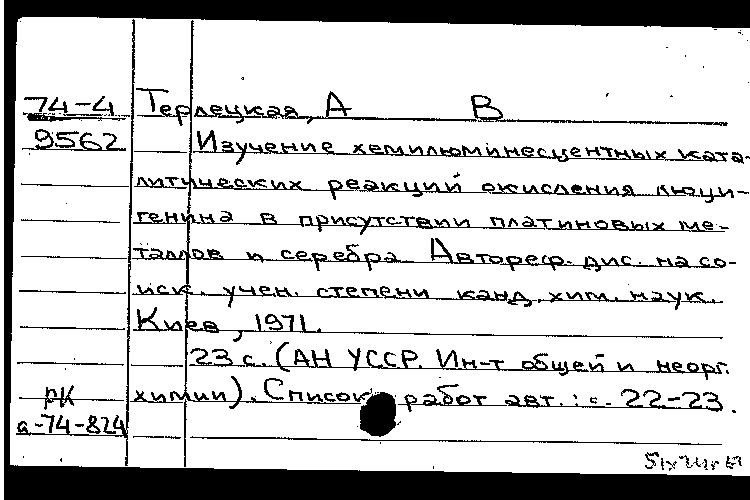 74-4 Терлецкая, А В
9562 Изучение хемилюминесцентных ката-
литических реакций окисления люци-
генина в присутствии платиновых ме-
таллов и серебра Автореф. дис. на со-
иск. учен. степени канд. хим. наук.
Киев, 1971.
23 с. (АН УССР. Ин-т общей и неорг.
рк химии). Список работ авт.: с. 22-23.
а-74-824